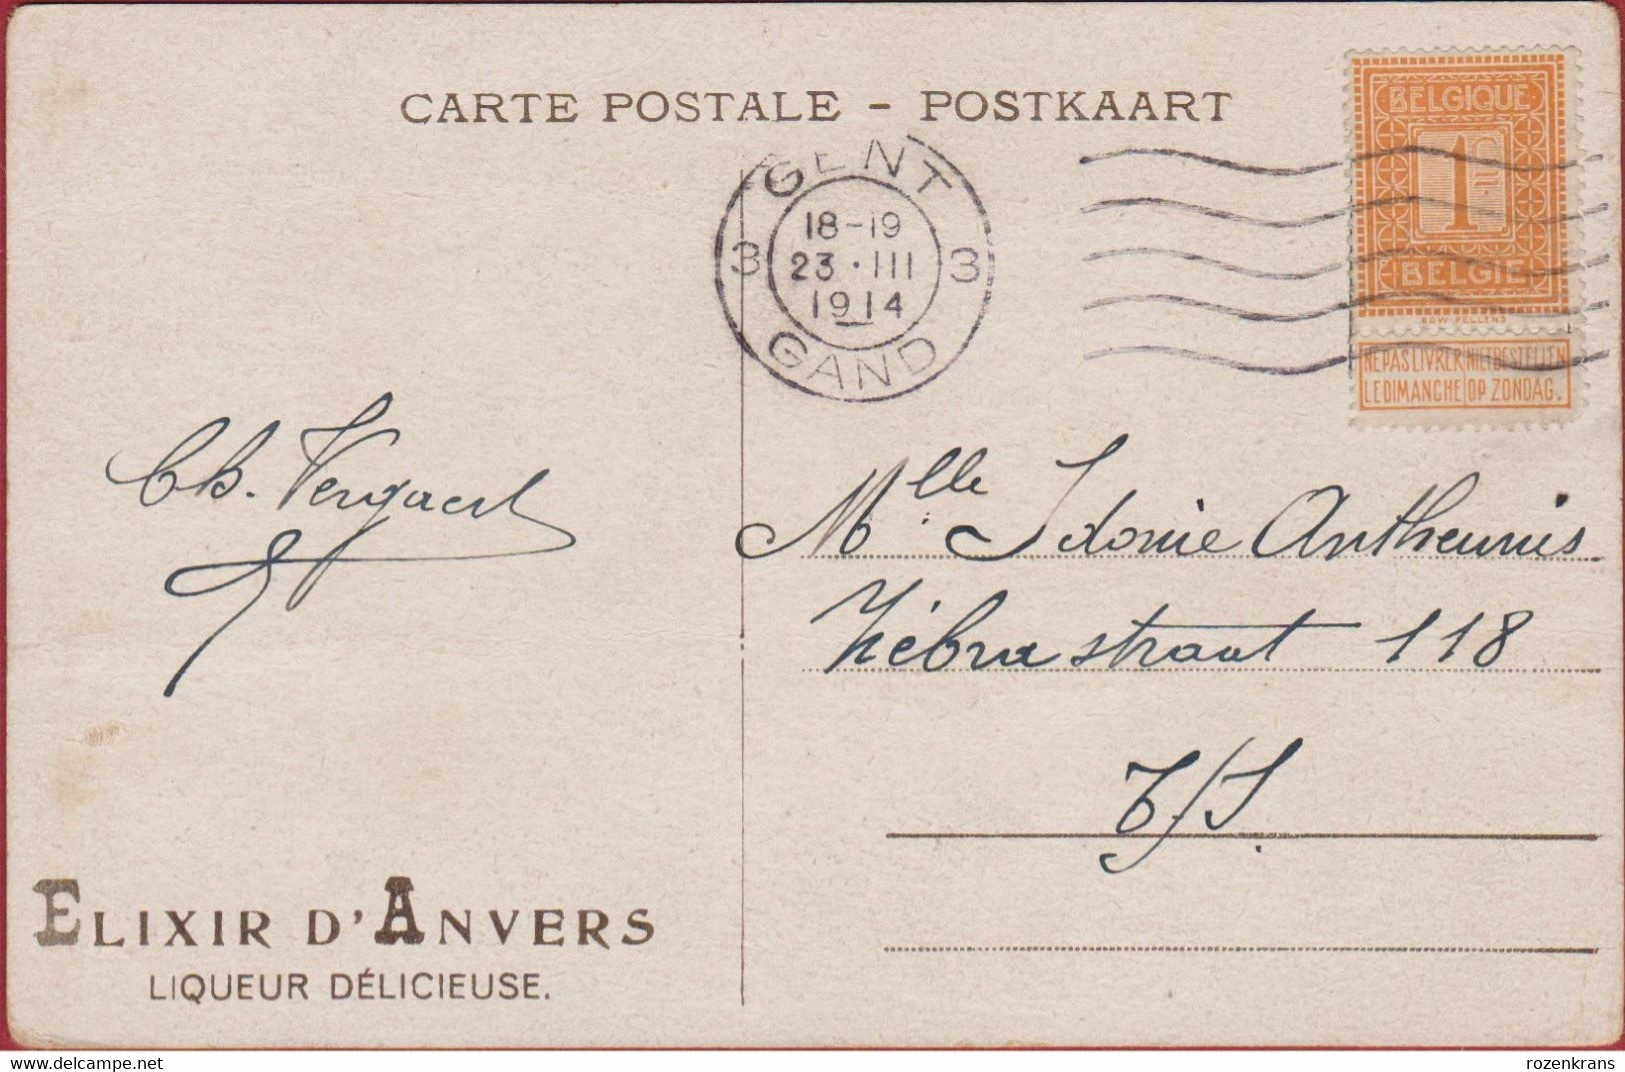 CARTE POSTALE - POSTKAART
BELGIQUE
1 Ct.
BELGIË
EDW. PELLENS
NE PAS LIVRER LE DIMANCHE
NIET BESTELLEN OP ZONDAG.
GENT
3 18-19 3
23 · III
1914
GAND
Ch. Vergaert
Mlle Idonie Antheunis
Zébrastraat 118
ELIXIR D'ANVERS
LIQUEUR DÉLICIEUSE.
rozenkrans
delcampe.net